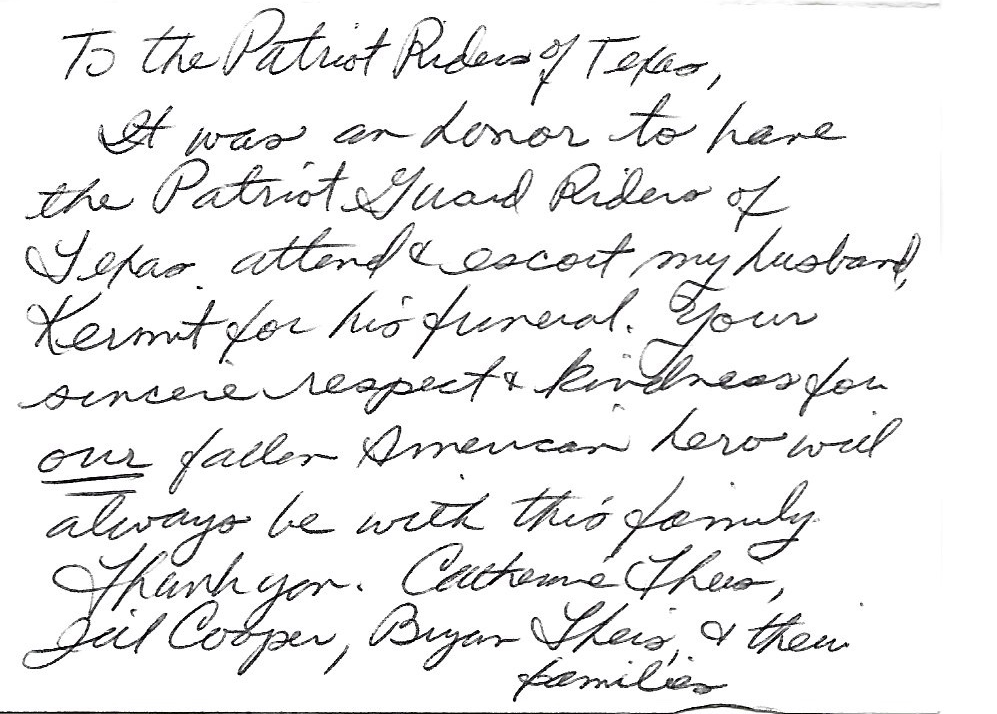 To the Patriot Riders of Texas,
It was an honor to have
the Patriot Guard Riders of
Texas attend & escort my husband,
Kermit for his funeral. Your
sincere respect & kindness for
our fallen American hero will
always be with this family.
Thank you. Catherine Theis,
Jill Cooper, Bryan Theis, & their
families